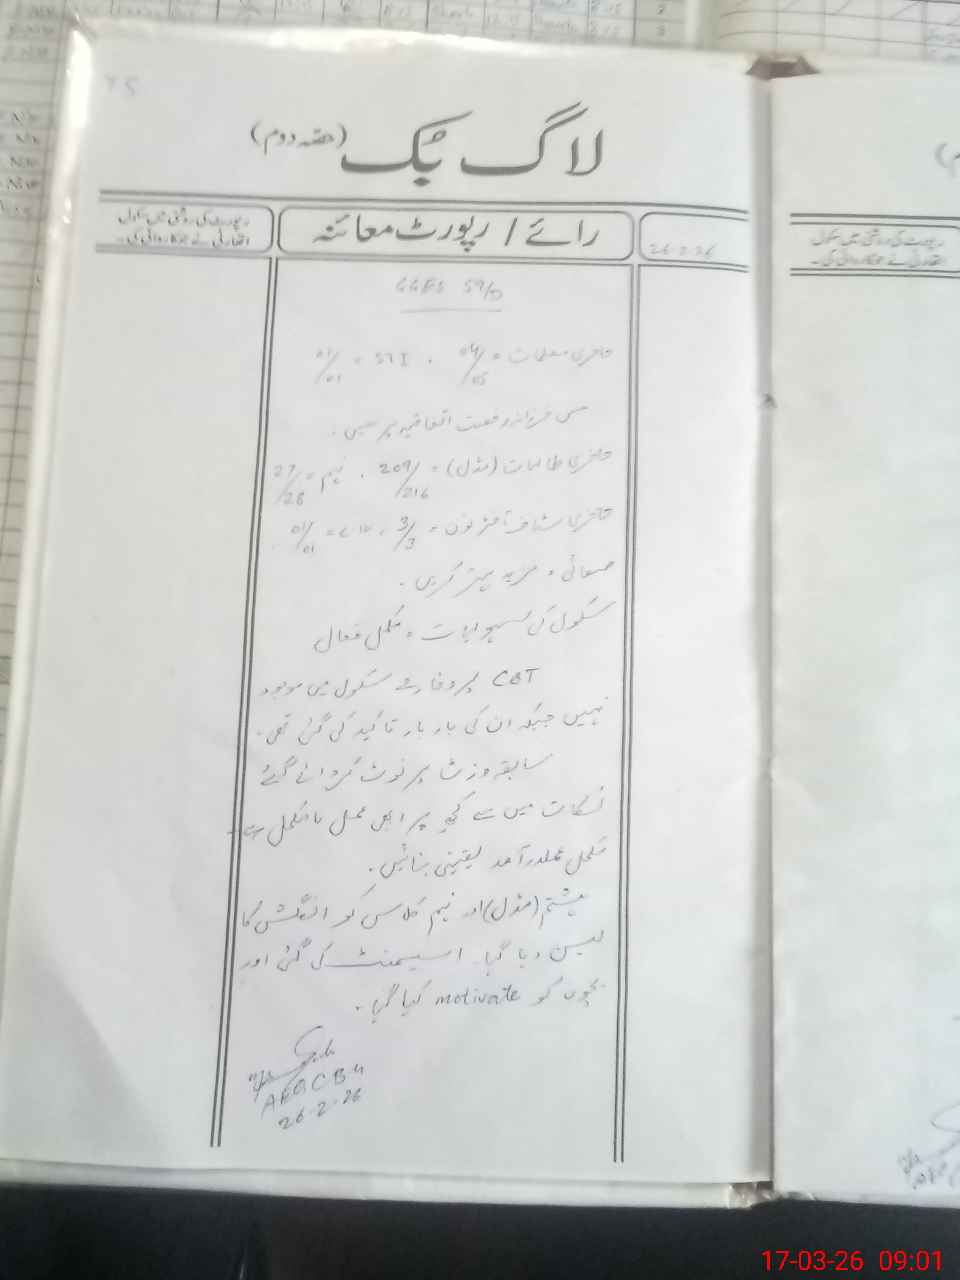 لاگ بُک (حصہ دوم)
26-2-26
رائے / رپورٹ معائنہ
رپورٹ کی روشنی میں سکول
اتھارٹی نے جو کاروائی کی۔
GGES 59/D
حاضری معلمات = 04/05 . STI = 01/01
مس فرزانہ رخصت اتفاقیہ پر ہیں۔
حاضری طالبات (مڈل) = 209/216 . نہم = 27/28
حاضری سٹاف آفٹرنون = 3/3 . = 01/01
صفائی = مزید بہتر کریں۔
سکول کی سہولیات = مکمل فعال
CBT پروفارمے سکول میں موجود
نہیں جبکہ ان کی بار بار تاکید کی گئی تھی۔
سابقہ وزٹ پر نوٹ کروائے گئے
نکات میں سے کچھ پر ابھی عمل نامکمل ہے۔
مکمل عملدرآمد یقینی بنائیں۔
ہشتم (مڈل) اور نہم کلاس کو انگلش کا
لیسن دیا گیا۔ اسیسمنٹ کی گئی اور
بچوں کو motivate کیا گیا۔
26-2-26
رپورٹ کی روشنی میں سکول
اتھارٹی نے جو کاروائی کی۔
17-03-26 09:01